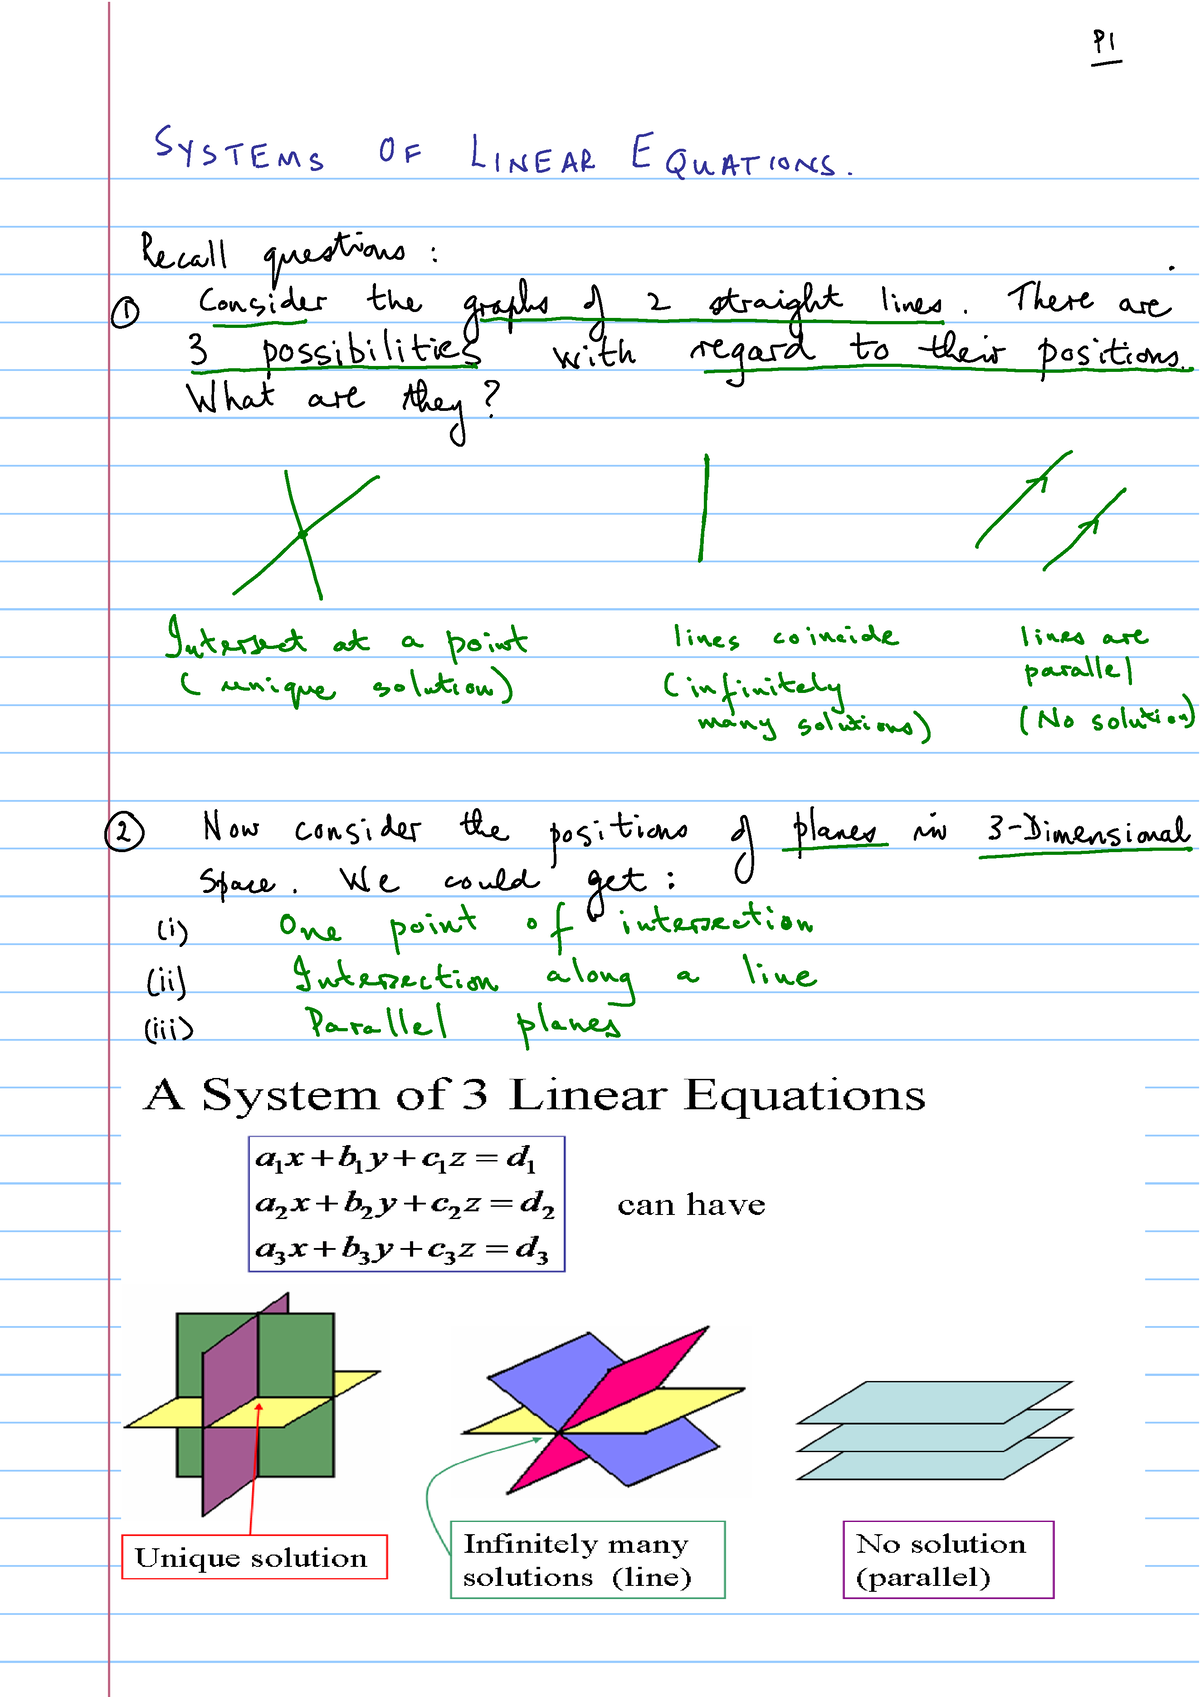 P1
SYSTEMS OF LINEAR EQUATIONS.
Recall questions :
① Consider the graphs of 2 straight lines. There are
3 possibilities with regard to their positions.
What are they?
Intersect at a point
(unique solution)
lines coincide
(infinitely
many solutions)
lines are
parallel
(No solution)
② Now consider the positions of planes in 3-Dimensional
Space. We could get :
(i) One point of intersection
(ii) Intersection along a line
(iii) Parallel planes
A System of 3 Linear Equations
a₁x + b₁y + c₁z = d₁
a₂x + b₂y + c₂z = d₂ can have
a₃x + b₃y + c₃z = d₃
Unique solution
Infinitely many
solutions (line)
No solution
(parallel)